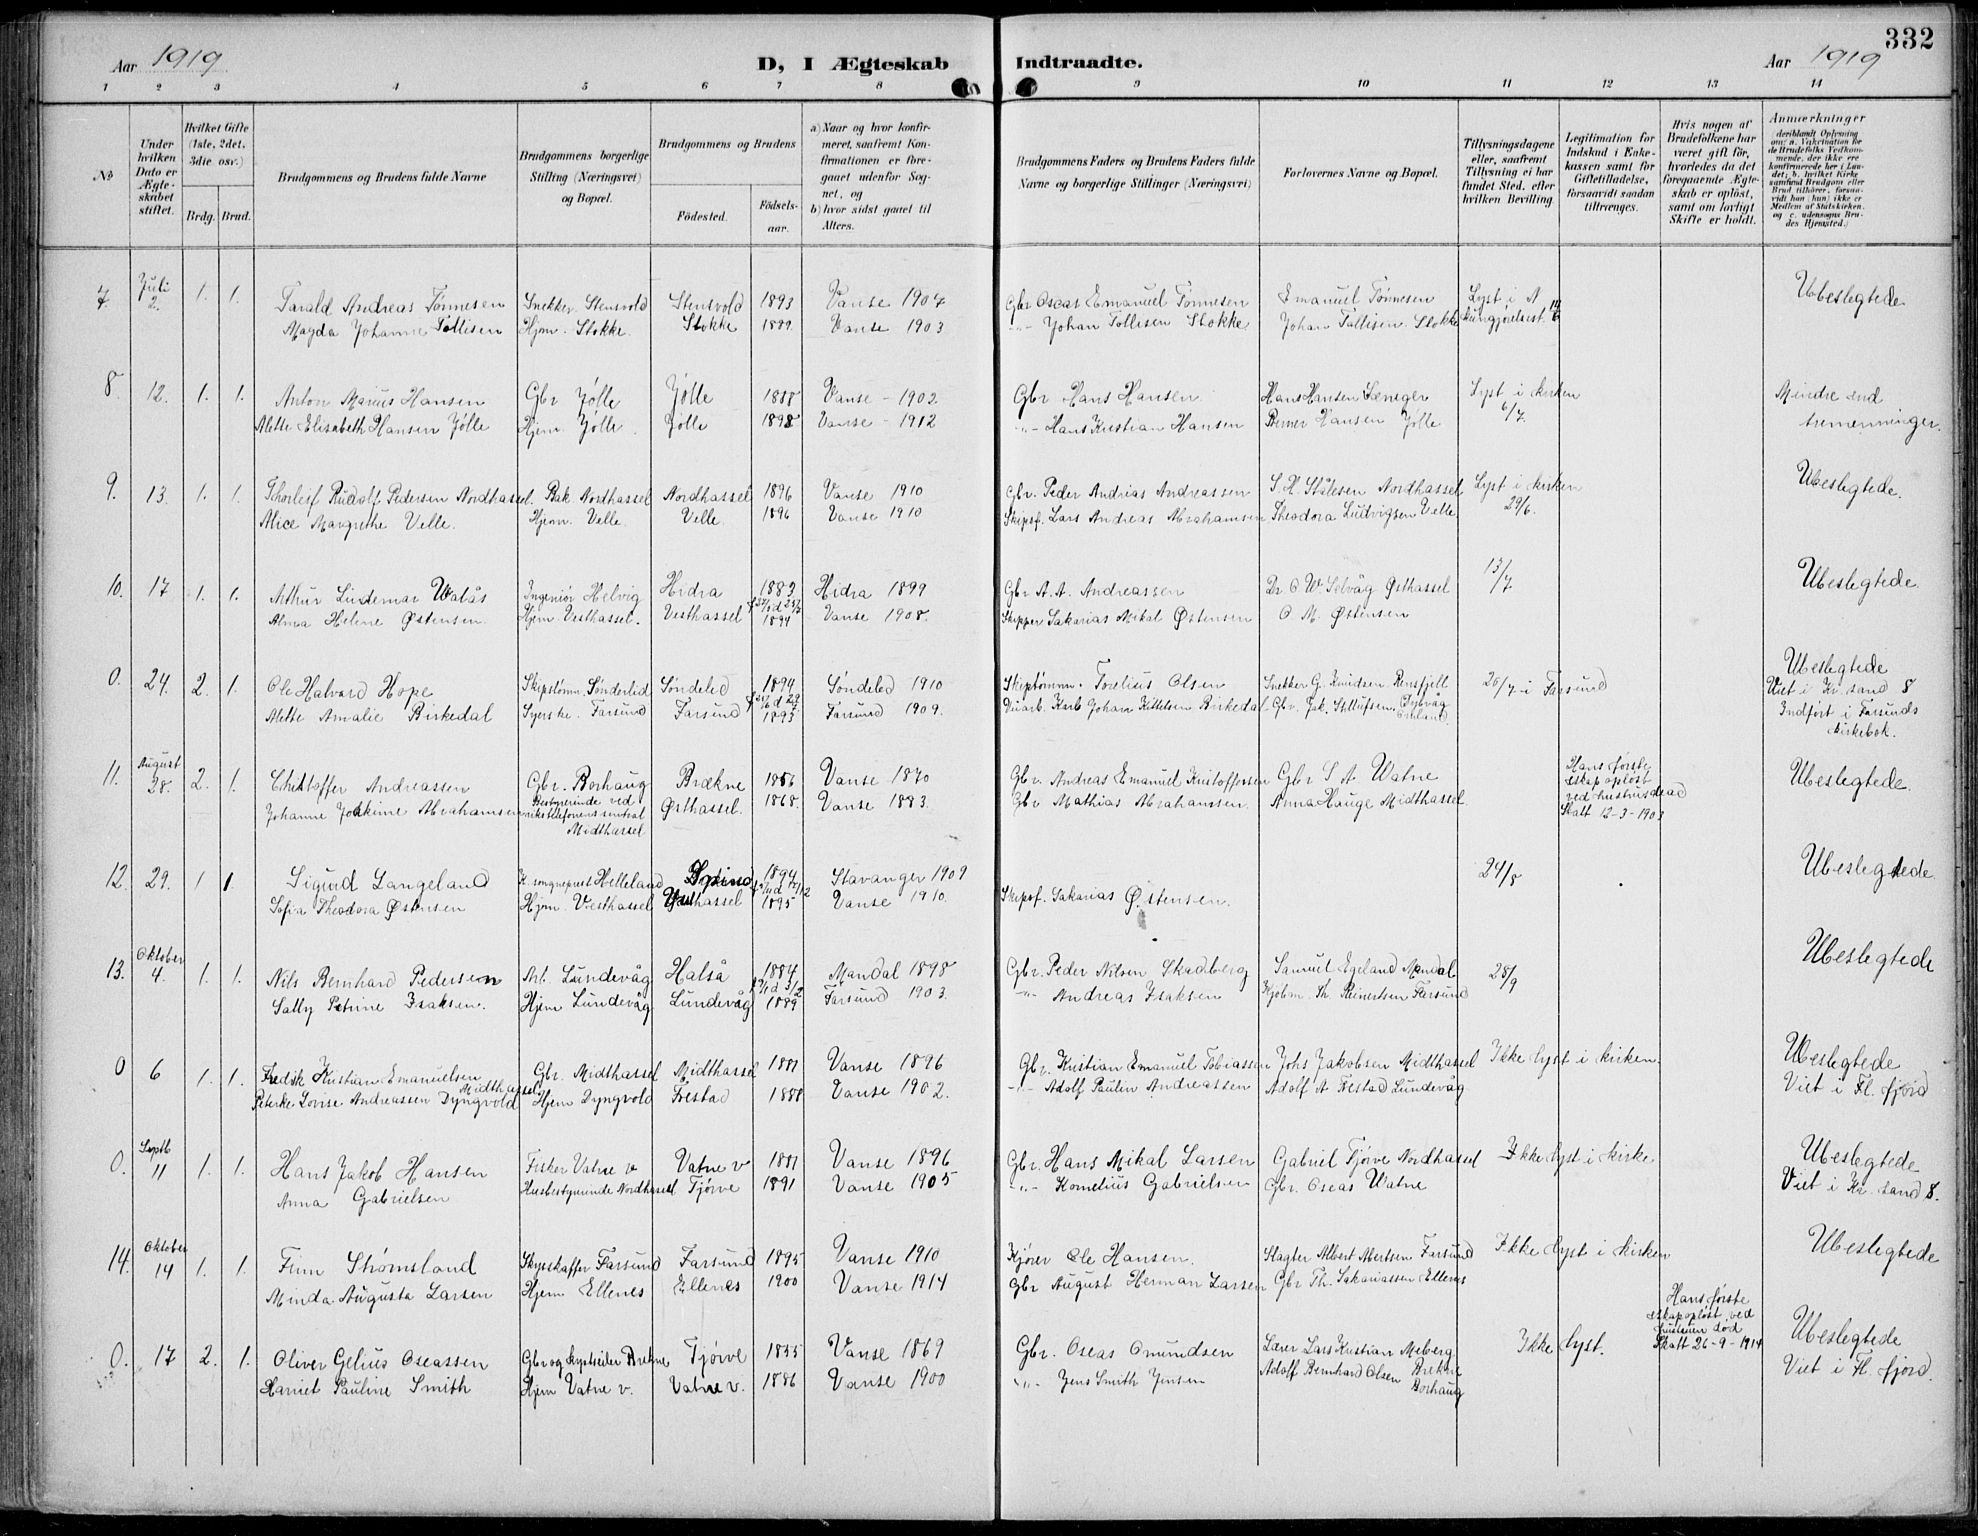 332
Aar 1919
D, I Ægteskab Indtraadte.
Aar 1919
1 2 3 4 5 6 7 8 9 10 11 12 13 14
№
Under hvilken Dato er Ægteskabet stiftet.
Hvilket Gifte (1ste, 2det, 3die osv.)
Brdg. Brud.
Brudgommens og Brudens fulde Navne
Brudgommens borgerlige Stilling (Næringsvei) og Bopæl.
Brudgommens og Brudens
Fødested. Fødselsaar.
a) Naar og hvor konfirmeret, saafremt Konfirmationen er foregaaet udenfor Sognet, og
b) hvor sidst gaaet til Alters.
Brudgommens Faders og Brudens Faders fulde Navne og borgerlige Stillinger (Næringsvei)
Forlovernes Navne og Bopæl.
Tillysningsdagene eller, saafremt Tillysning ei har fundet Sted, efter hvilken Bevilling.
Legitimation for Indskud i Enkekassen samt for Giftetilladelse, forsaavidt saadan tiltrænges.
Hvis nogen af Brudefolkene har været gift før, hvorledes da det foregaaende Ægteskab er opløst, samt om lovligt Skifte er holdt.
Anmærkninger
7 Juli 2. 1. 1. Tarald Andreas Tønnesen Snekker Stensvold Stensvold 1893 Vanse 1907 Gbr Oseas Emanuel Tønnesen Emanuel Tønnesen Lyst i Ubeslegtede
Magda Johanne Tollisen Hjem. Stokke. Stokke 1889 Vanse 1903 -"- Johan Tollisen Stokke Johan Tollisen Stokke
8. 12. 1. 1. Anton Marius Hansen Gbr Jølle Jølle 1888 Vanse - 1902. Gbr Hans Hansen Hans Hansen Lyst i kirken Mindre end
Alette Elisabeth Hansen Jølle Hjem. Jølle Jølle 1898 Vanse - 1912 -"- Hans Kristian Hansen Berner Hansen Jølle 6/7. tremenninger.
9. 13. 1. 1. Thorleif Rudolf Pedersen Nordhassel. Bak. Nordhassel Nordhassel 1896 Vanse 1910 Gbr. Peder Andrias Andreassen S. H. Stålesen Nordhassel Lyst i kirken Ubeslegtede.
Alice Margrethe Velle. Hjem. Velle. Velle. 1896 Vanse 1910 Skipsf. Lars Andreas Abrahamsen Theodora Ludvigsen Velle 29/6.
10. 17 1. 1. Arthur Lindemar Ingeniør Helvig Hidra 1883 Hidra 1899 Gbr A. A. Andreassen Dr. O W Selvåg Østhassel 13/7 Ubeslegtede
Alma Helene Østensen Hjem Vesthassel. Vesthassel 1894 Vanse 1908. Skipper Sakarias Mikal Østensen O. M. Østensen
0. 24. 2. 1. Ole Halvard Hope Skipstømm. Sønderlid Søndeled 1894 Søndeled 1910 Skipstømm. Torelius Olsen Snekker G. Knudsen 20/7 i Farsund Ubeslegtede
Alette Amalie Birkedal Syerske. Farsund Farsund 1893 Farsund 1909. Johan Kittelsen Birkedal Viet i Kr. sand S
Indført i Farsunds kirkebok.
11. August 28. 2. 1. Christoffer Andreassen Gbr. Borhaug Brækne 1856 Vanse 1870 Gbr. Andreas Emanuel Kristoffersen Gbr S A. Watne Hans første eskap opløst ved hustrus død Skalt 12-3-1903 Ubeslegtede.
Johanne Jokkime Abrahamsen Bestyrerinde ved rikstelefonens sentral Midthassel Østhassel. 1868. Vanse 1883. Gbr Mathias Abrahamsen Anna Hauge Midthassel
12. 29. 1 1 Sigurd Langeland K. sogneprest Helleland 1894 Stavanger 1909 24/8 Ubeslegtede
Sofia Theodora Østensen Hjem. Vesthassel Vesthassel 1895 Vanse 1910. Skipsf. Sakarias Østensen.
13. Oktober 4. 1. 1. Nils Bernhard Pedersen Arb. Lundevåg Halså 1884 Mandal 1898 Gbr. Peder Nilsen Skadberg Samuel Egeland Mandal 28/9 Ubeslegtede
Sally Petrine Isaksen. Hjem Lundevåg Lundevåg 1889 Farsund 1903. -"- Andreas Isaksen Kjøbm. Th. Reinertsen Farsund
0 6 1. 1. Fredrik Kristian Emanuelsen Midthassel Gbr. Midthassel Midthassel 1881 Vanse 1896 Gbr. Kristian Emanuel Tobiassen Johs Jakobsen Midthassel Ikke lyst i kirken. Ubeslegtede
Peterke Lovise Andreassen Dyngvold Hjem Dyngvold Frestad 1888 Vanse 1902. -"- Adolf Paulin Andreassen Adolf A Frestad Lundevåg Viet i Fl. fjord
0. Septb 11 1. 1. Hans Jakob Hansen Fisker Vatne v Vatne v 1881 Vanse 1896 Gbr. Hans Mikal Larsen Gabriel Tjørve Nordhassel Ikke lyst i kirke Ubeslegtede
Anna Gabrielsen Husbestyrerinde Nordhassel Tjørve 1891 Vanse 1905 -"- Kornelius Gabrielsen Gbr. Oseas Watne Viet i Kr. sand S.
14. Oktober 14 1. 1. Finn Strømsland Skysskaffer Farsund Farsund 1895 Vanse 1910 Kjører Ole Hansen. Slagter Albert Abertsen Farsund Ikke lyst i kirken Ubeslegtede
Minda Augusta Larsen Hjem Ellenes Ellenes 1900 Vanse 1914 Gbr August Herman Larsen Gbr Th. Sakariassen Ellenes
0. 17 2. 1. Oliver Gelius Oseassen Gbr og Brekne Tjørve 1855 Vanse 1869 Gbr. Oseas Omundsen Lærer Lars Kristian Meberg Brekne Ikke lyst. Hans første eskap opløst ved hustruen død Skalt 26-9-1914 Ubeslegtede
Harriet Pauline Smith Hjem Vatne v. Vatne v. 1886 Vanse 1900 -"- Jens Smith Jensen Adolf Bernhard Olsen Borhaug Viet i Fl. fjord.